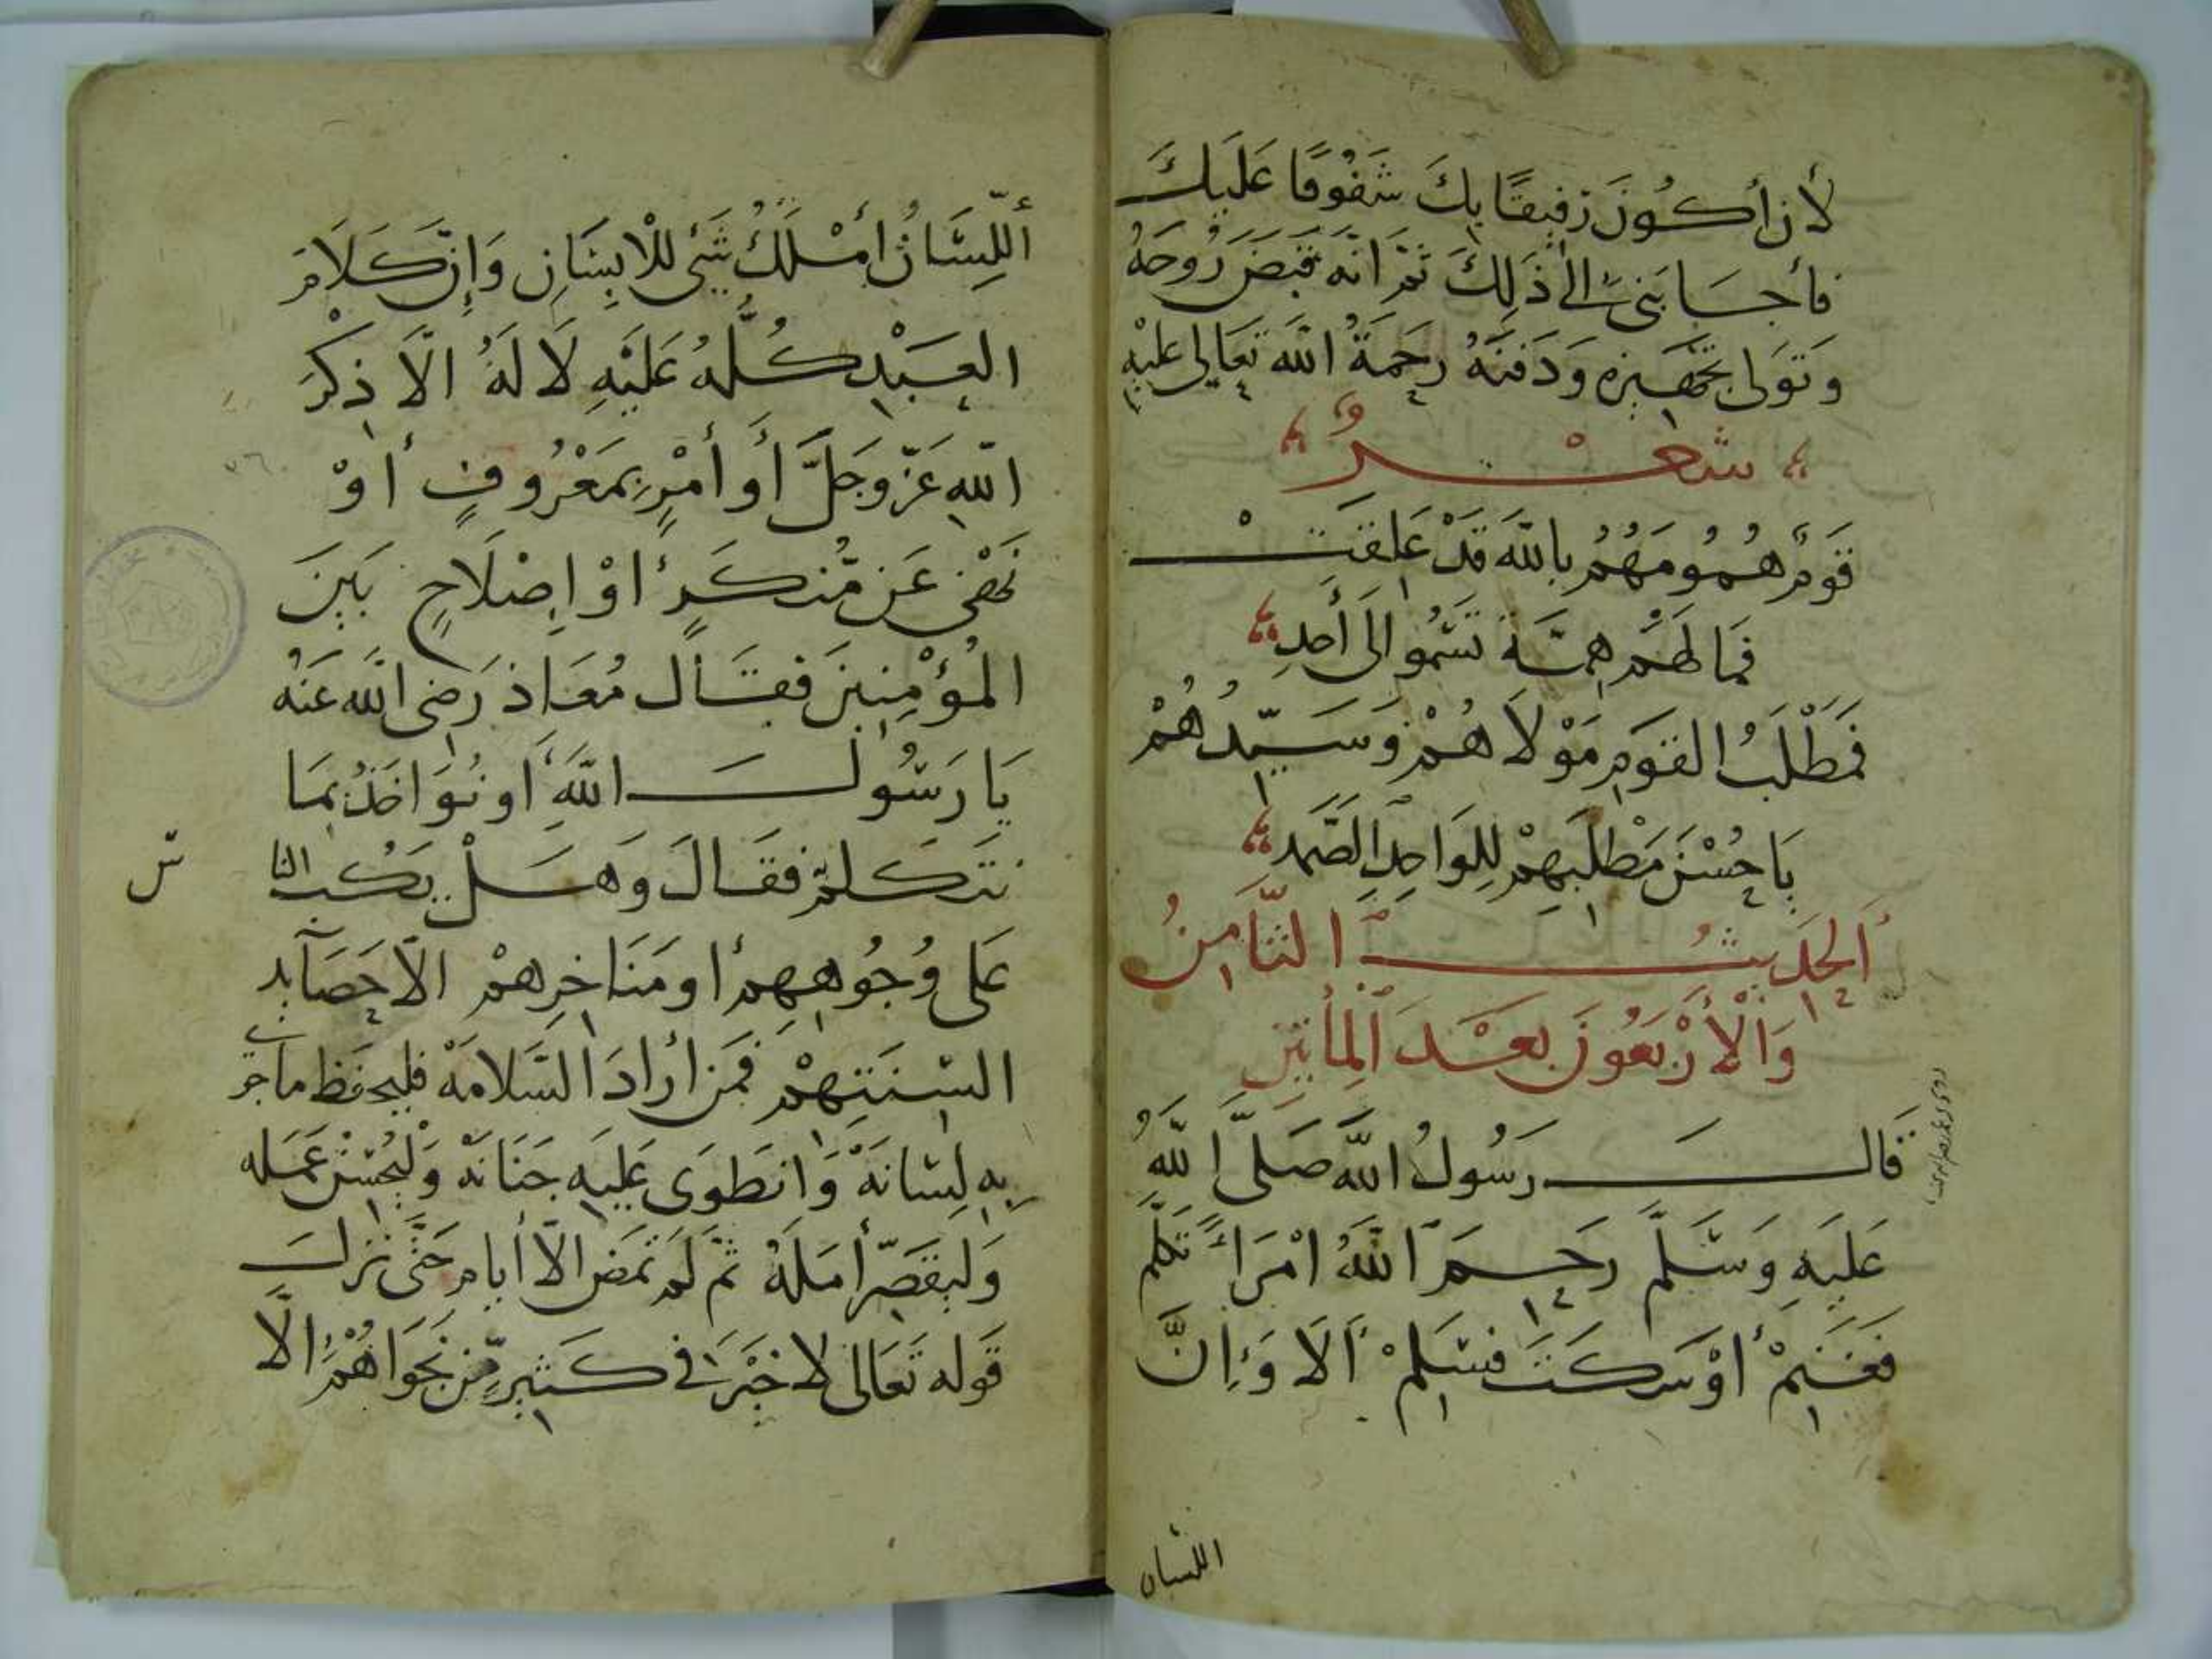 لأن أكُونَ رَفيقًا بِكَ شَفُوقًا عَلَيكَ
فأجابَني الى ذَلِكَ ثم انه قَبَضَ رُوحَهُ
وَتَوَلى تجهيزه وَدَفنَهُ رحَمةُ الله تعَالى عليْهِ
شعْرٌ
قَومٌ هُمُومَهُمُ بالله قَدْ عَلِقَتْ
فمَا لهَمُ هِمَّة تَسْمُو الى أَحدِ
فمَطْلَبُ القَوم مَوْلاَهُمْ وَسَيّدُهُمْ
يَا حُسْنَ مَطْلَبِهِمْ لِلوَاحِدِ الصَّمدِ
اَلحَدَيثُ الثَّامِنُ
وَالْأَرْبَعُونَ بعْدَ المِأتَينِ
قَالَ رَسُولُ اللَّه صَلَّى اللَّهُ
عَلَيهِ وَسَلَّمَ رحِمَ اللَّهُ امْرَأً تَكَلَّمَ
فَغَنِمْ أوْ سَكَتَ فسَلِمْ أَلَا وَإِنَّ
اللسان
أللِّسَانُ أمْلَكُ شَىْءٍ للْانِسَانِ وَإنَّ كَلَامَ
العَبْدِ كُلَّهُ عَلَيْهِ لاَ لَهُ الَّا ذِكْرَ
اللهِ عَزّ وجَلَّ أَو أَمْرٍ بمَعْرُوفٍ أوْ
نَهْىٍ عَن مُّنكَرٍ اوْ إِصْلَاحٍ بَينَ
المُؤْمِنِينَ فقَال مُعَاذ رَضي الله عَنهُ
يَا رَسُولَ اللَّهِ اونُوَاخَذُ بمَا
نتَكلم فقَالَ وَهَلْ يَكُب النا
س
عَلى وُجُوهِهِم او مَنَاخِرِهمْ الاّ حَصَآيد
السنَتِهمْ فمَن أرادَ السَّلامَة فليحفَظ ما جرى
به لِسَانَهْ وَانطَوَى عَليَهِ جَنَانَه وَلْيُحْسِنْ عَمَله
وَليقصّر أمَلَهُ ثم لم تمَض الاّ أيام حَتَّى نَزلَ
قَوله تَعَالى لا خَيْرَ في كَثِيرٍ مِّن نجَوَاهُمْ الَّا